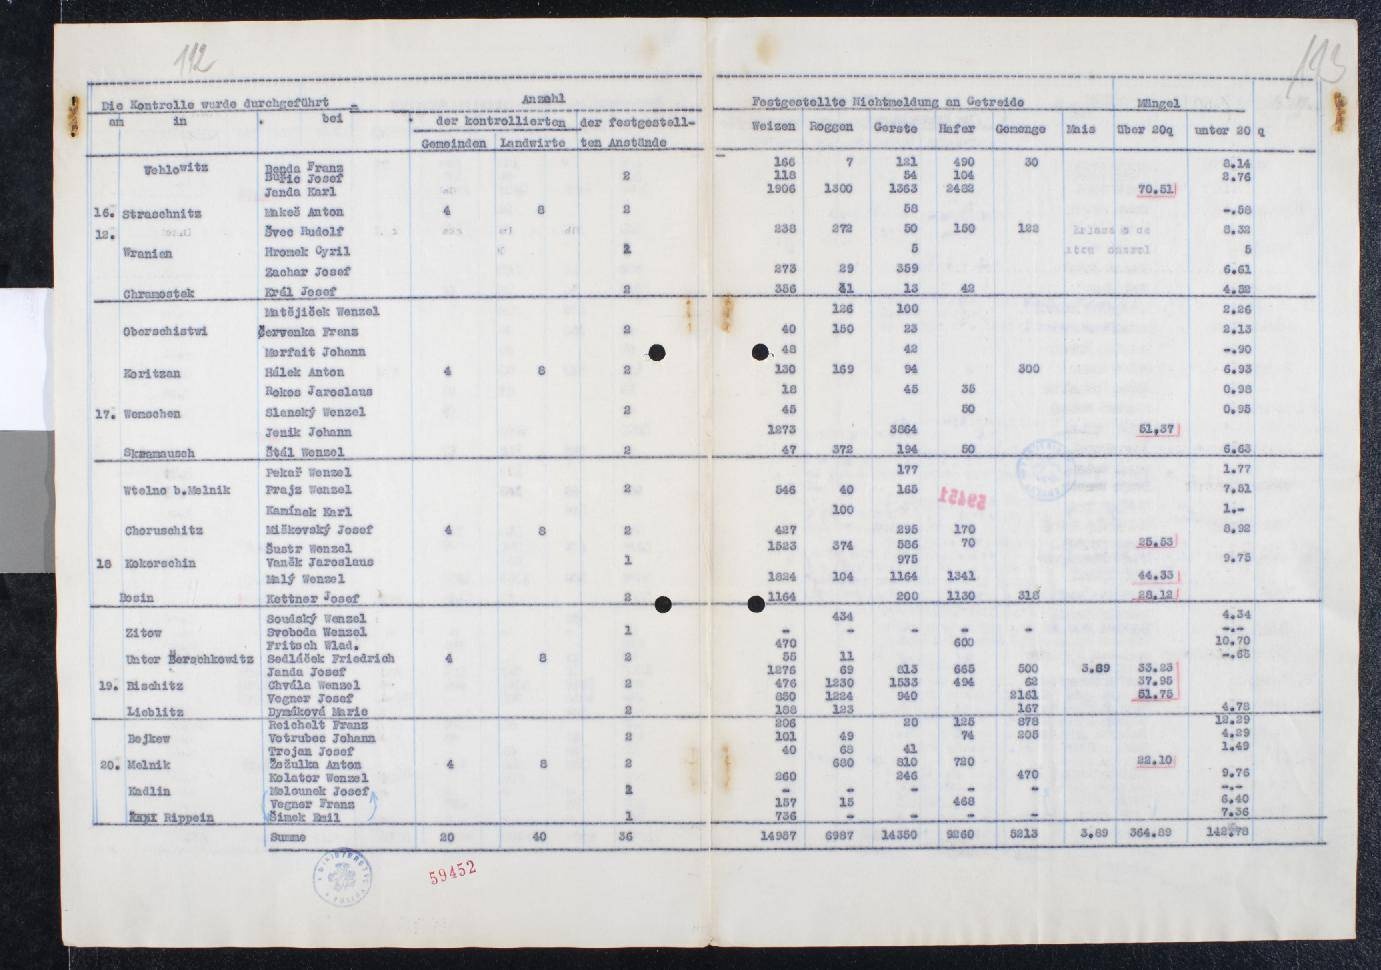 112
113
Anzahl Festgestellte Nichtmeldung an Getreide Mängel
Die Kontrolle wurde durchgeführt
am in bei der kontrollierten der festgestell- Weizen Roggen Gerste Hafer Gemenge Mais über 20q unter 20 q
Gemeinden Landwirte ten Anstände
Wehlowitz Benda Franz 166 7 121 490 30 8.14
Buric Josef 2 118 54 104 2.76
Janda Karl 1906 1300 1363 2482 70.51
16. Straschnitz Makeš Anton 4 8 2 58 -.58
12. Švec Rudolf 238 272 50 150 122 8.32
Wranien Hromek Cyril 2 5 5
Zachar Josef 273 29 359 6.61
Chramostek Král Josef 2 356 41 13 42 4.52
Matějíček Wenzel 126 100 2.26
Oberschistwi Červenka Franz 2 40 150 23 2.13
Morfait Johann 48 42 -.90
Koritzan Hálek Anton 4 8 2 130 169 94 300 6.93
Rokos Jaroslaus 18 45 35 0.98
17. Wemschen Slanský Wenzel 2 45 50 0.95
Jenik Johann 1273 3864 51,37
Skramausch Štál Wenzel 2 47 372 194 50 6.63
Pekař Wenzel 177 1.77
Wtelno b.Melnik Frajz Wenzel 2 546 40 165 7.51
Kamínek Karl 100 1.-
Choruschitz Miškovský Josef 4 8 2 427 295 170 8.92
Šustr Wenzel 1523 374 586 70 25.53
18 Kokorschin Vaněk Jaroslaus 1 975 9.75
Malý Wenzel 1824 104 1164 1341 44.33
Bosin Kettner Josef 2 1164 200 1130 318 28.12
Soudský Wenzel 434 4.34
Zitow Svoboda Wenzel 1 - - - - - -.-
Fritsch Wlad. 470 600 10.70
Unter Berschkowitz Sedláček Friedrich 4 8 2 55 11 -.66
Janda Josef 1276 69 813 665 500 3.89 33.23
19. Bischitz Chvála Wenzel 2 476 1230 1533 494 62 37.95
Vegner Josef 850 1224 940 2161 51.75
Lieblitz Dymáková Marie 2 188 123 167 4.78
Reichelt Franz 206 20 125 878 12.29
Bejkew Votrubec Johann 2 101 49 74 205 4.29
Trojan Josef 40 68 41 1.49
20. Melnik Žažulka Anton 4 8 2 680 810 720 22.10
Kolator Wenzel 260 246 470 9.76
Kadlin Melounek Josef 2 - - - - - -.-
Vegner Franz 157 15 468 6.40
Rippein Šimek Emil 1 736 - - - - 7.36
Summe 20 40 36 14957 6987 14350 9260 5213 3.89 364.89 142.78
59451
59452